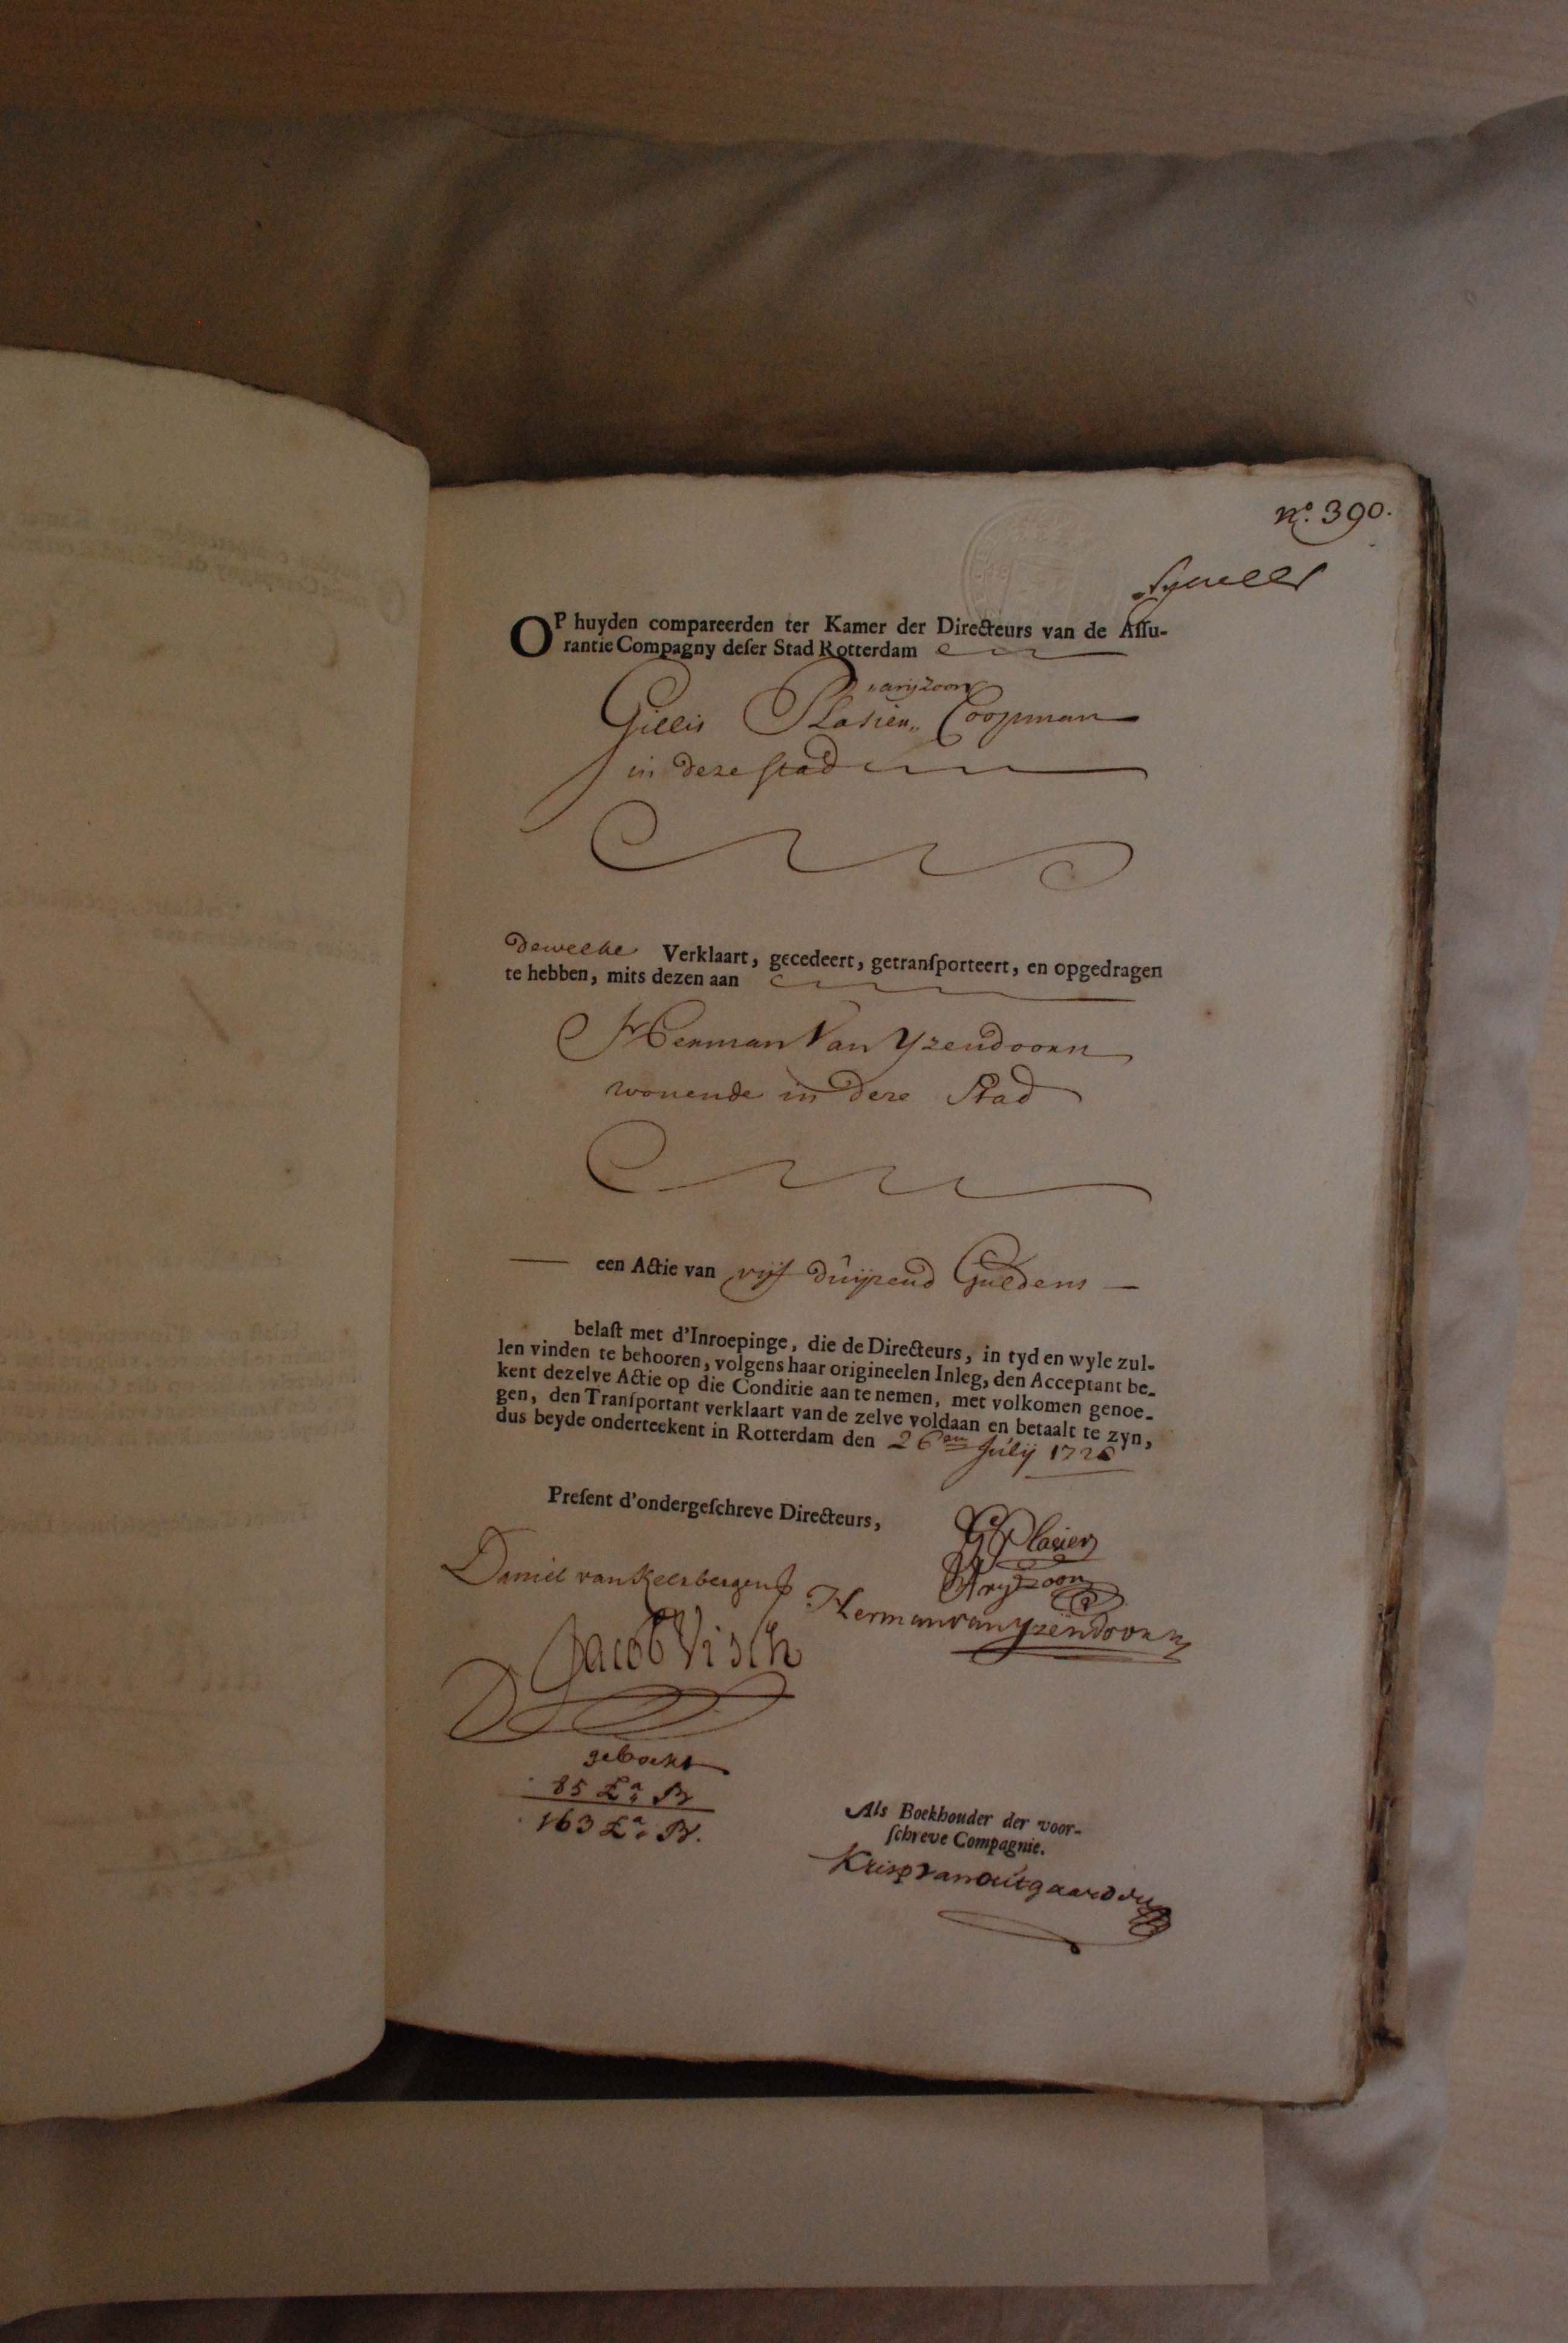 nº. 390.
OP huyden compareerden ter Kamer der Directeurs van de Assu-
rantie Compagny deser Stad Rotterdam
arijzoon
Gillis Plasier,, Coopman
in deze stad
dewelke Verklaart, gecedeert, getransporteert, en opgedragen
te hebben, mits dezen aan
Herman Van Yzendoorn
wonende in deze Stad
een Actie van vijf duijzend Guldens
belast met d'Inroepinge, die de Directeurs, in tyd en wyle zul-
len vinden te behooren, volgens haar origineelen Inleg, den Acceptant be-
kent dezelve Actie op die Conditie aan te nemen, met volkomen genoe-
gen, den Transportant verklaart van de zelve voldaan en betaalt te zyn,
dus beyde onderteekent in Rotterdam den 26en Julij 172
Present d'ondergeschreve Directeurs,
G Plasier
Arijzoon
Daniel van Kelsbergen
Herman van yzendoorn
Jacob Visch
geboekt
85 La. B
163 La. B.
Als Boekhouder der voor-
schreve Compagnie.
Krisp van outgaarden